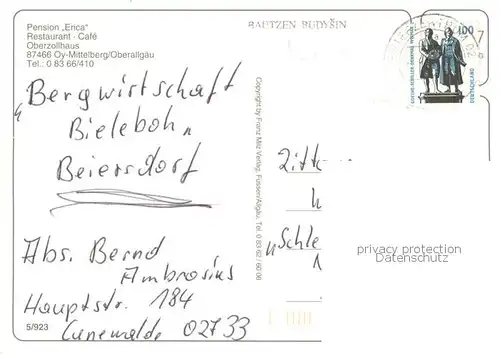 Pension „Erica"
Restaurant · Café
Oberzollhaus
87466 Oy-Mittelberg/Oberallgäu
Tel.: 0 83 66/410
BAUTZEN BUDYŠIN
100
DEUTSCHLAND
„Bergwirtschaft
Bieleboh"
Beiersdorf
Abs. Bernd
Ambrosius
Hauptstr. 184
Cunewalde 02733
5/923
Copyright by Franz Milz Verlag, Füssen/Allgäu, Tel. 0 83 62 / 60 08
Zitt
„Schle
privacy protection
Datenschutz